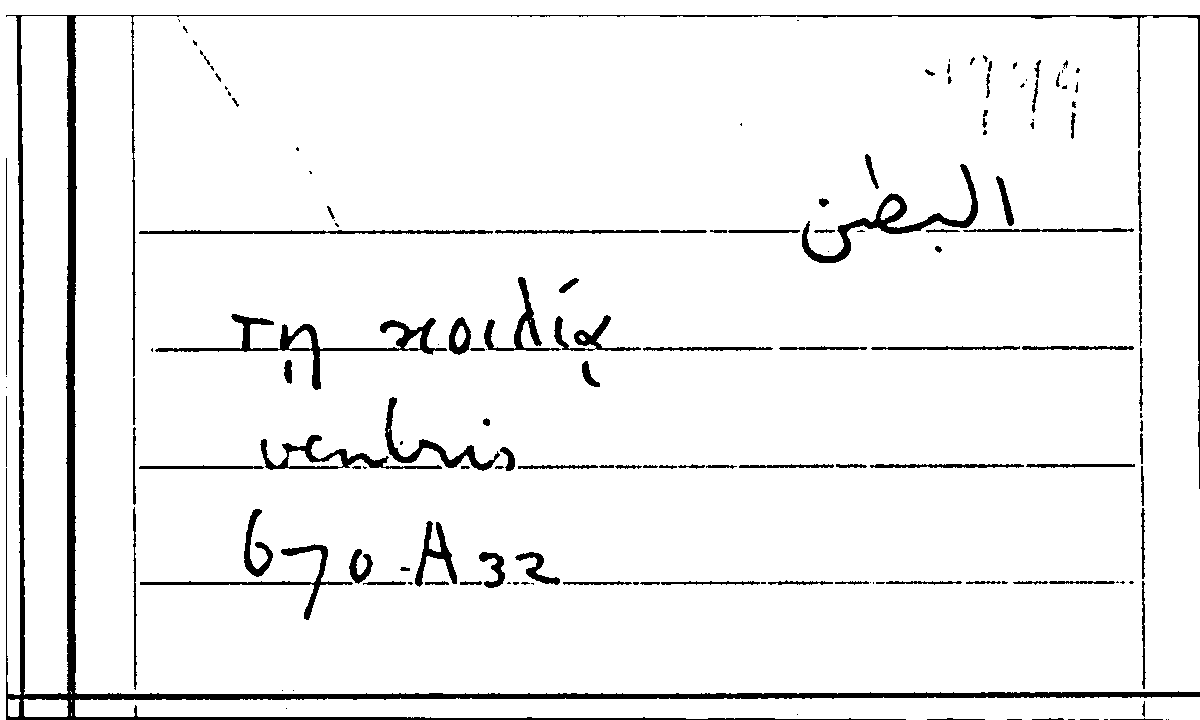 البطن
τῇ κοιλίᾳ
ventris
670-A32